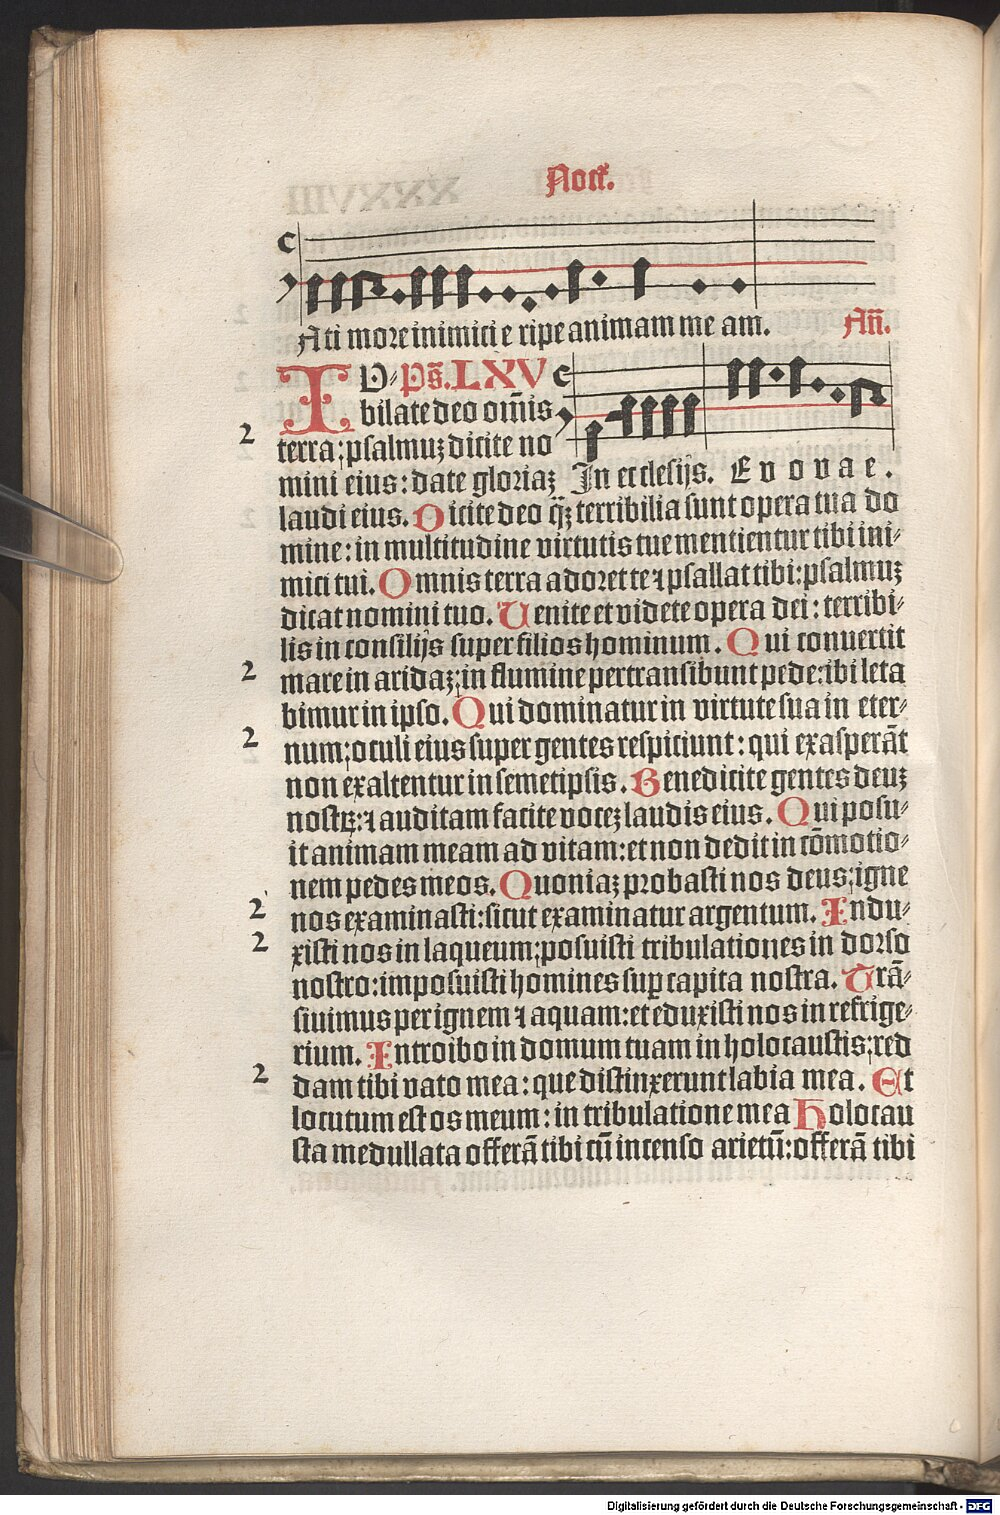 Noct̄.
A ti more inimici e ripe animam me am. Añ.
IV- Ps̄. LXV
bilate deo om̄is
2 terra; psalmuʒ dicite no
mini eius: date gloriaʒ In ecclesijs. E v o v a e.
laudi eius. Dicite deo q̄ʒ terribilia sunt opera tua do
mine: in multitudine virtutis tue mentientur tibi ini-
mici tui. Omnis terra adoret te ⁊ psallat tibi: psalmuʒ
dicat nomini tuo. Venite et videte opera dei: terribi-
lis in consilijs super filios hominum. Qui conuertit
2 mare in aridaʒ; in flumine pertransibunt pede: ibi leta
bimur in ipso. Qui dominatur in virtute sua in eter-
2 num; oculi eius super gentes respiciunt: qui exasperāt
non exaltentur in semetipsis. Benedicite gentes deuʒ
nostꝝ: ⁊ auditam facite voceʒ laudis eius. Qui posu-
it animam meam ad vitam: et non dedit in cōmotio-
nem pedes meos. Quoniaʒ probasti nos deus; igne
2 nos examinasti: sicut examinatur argentum. Indu-
2 xisti nos in laqueum; posuisti tribulationes in dorso
nostro: imposuisti homines suꝑ capita nostra. Trā-
siuimus per ignem ⁊ aquam: et eduxisti nos in refrige-
rium. Introibo in domum tuam in holocaustis; red
2 dam tibi vato mea: que distinxerunt labia mea. Et
locutum est os meum: in tribulatione mea Holocau
sta medullata offerā tibi cū incenso arietū: offerā tibi
Digitalisierung gefördert durch die Deutsche Forschungsgemeinschaft - DFG